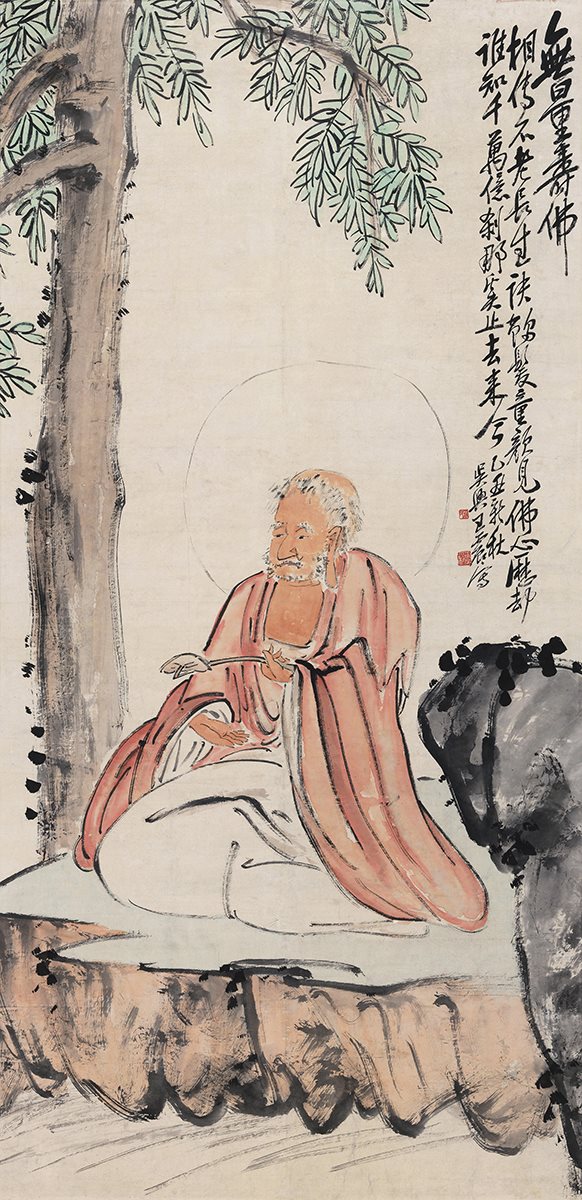 無量壽佛
相傳不老長生訣鶴髮童顏見佛心歷劫
誰知千萬億剎那奚止去來今乙亥新秋
吳興王震寫